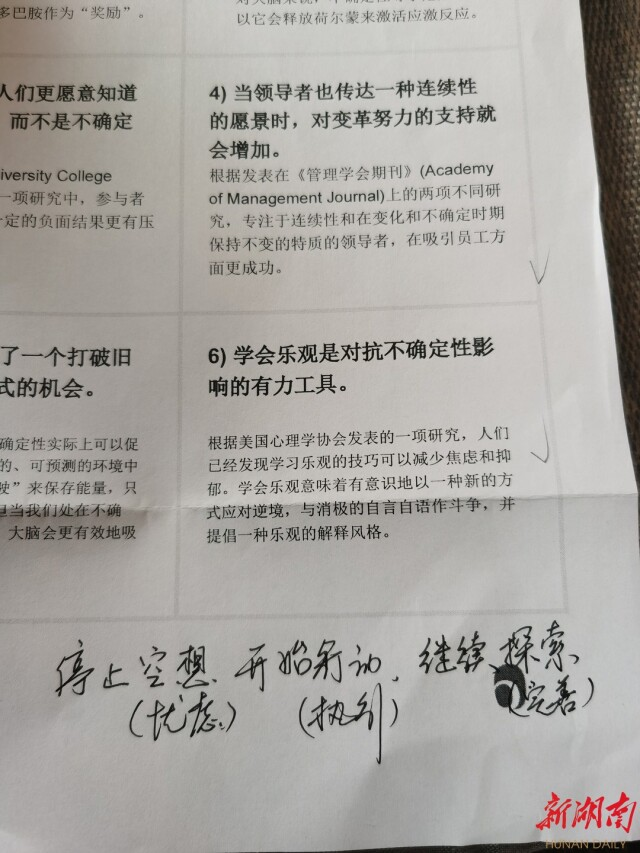 多巴胺作为“奖励”。
以它会释放荷尔蒙来激活应激反应。
人们更愿意知道
而不是不确定
iversity College
一项研究中，参与者
定的负面结果更有压
4) 当领导者也传达一种连续性
的愿景时，对变革努力的支持就
会增加。
根据发表在《管理学会期刊》(Academy
of Management Journal)上的两项不同研
究，专注于连续性和在变化和不确定时期
保持不变的特质的领导者，在吸引员工方
面更成功。
了一个打破旧
式的机会。
确定性实际上可以促
的、可预测的环境中
驶”来保存能量，只
当我们处在不确
大脑会更有效地吸
6) 学会乐观是对抗不确定性影
响的有力工具。
根据美国心理学协会发表的一项研究，人们
已经发现学习乐观的技巧可以减少焦虑和抑
郁。学会乐观意味着有意识地以一种新的方
式应对逆境，与消极的自言自语作斗争，并
提倡一种乐观的解释风格。
停止空想 开始行动，继续探索
(忧虑) (执行) (完善)
新湖南
HUNAN DAILY